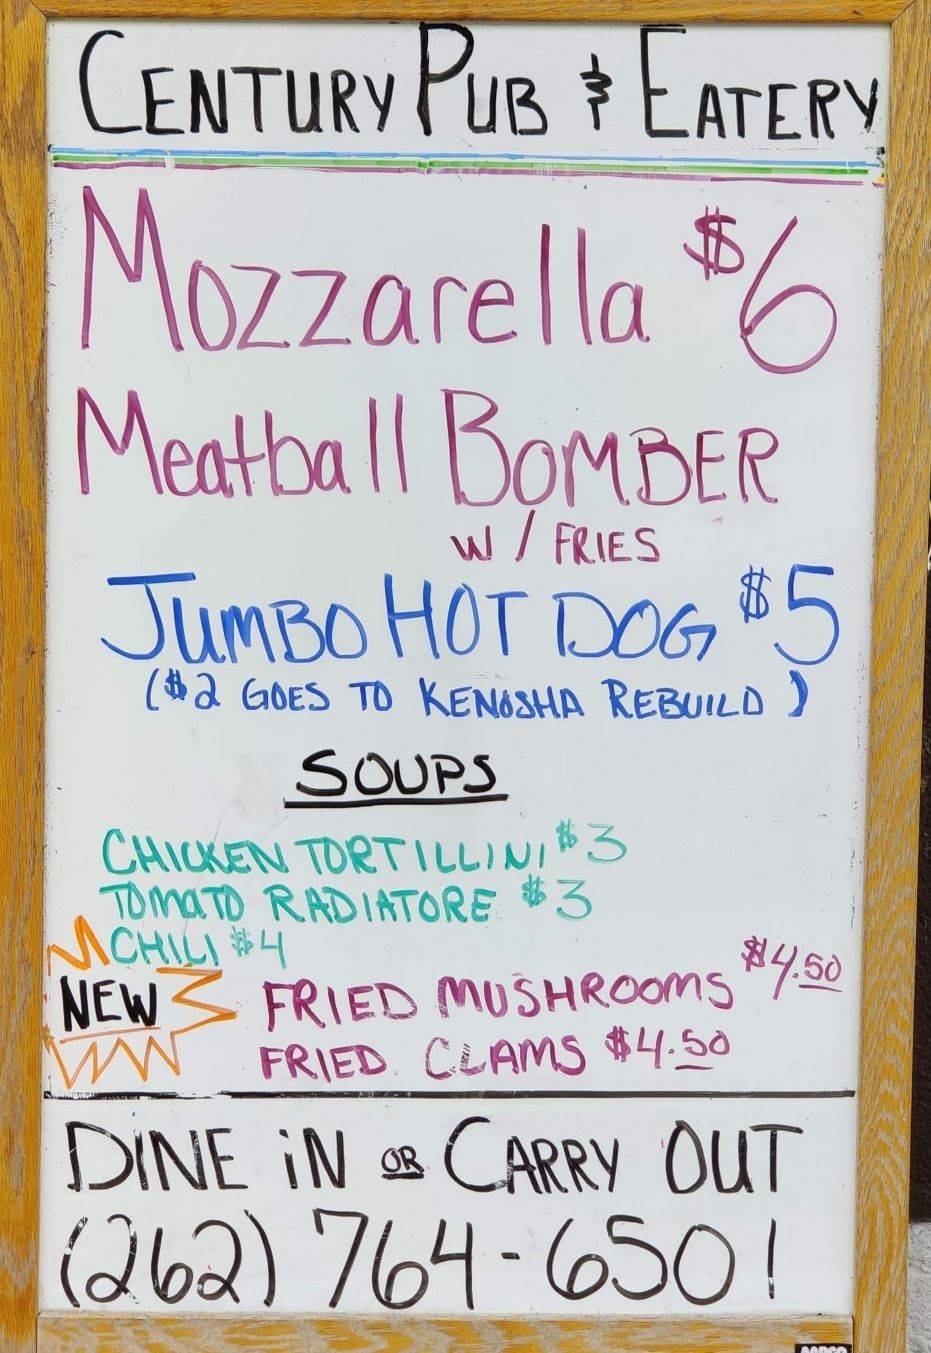 CENTURY PUB & EATERY
Mozzarella $6
Meatball BOMBER
W/FRIES
JUMBO HOT DOG $5
($2 GOES TO KENOSHA REBUILD)
SOUPS
CHICKEN TORTILLINI $3
TOMATO RADIATORE $3
CHILI $4
NEW
FRIED MUSHROOMS $4.50
FRIED CLAMS $4.50
DINE IN OR CARRY OUT
(262) 764-6501